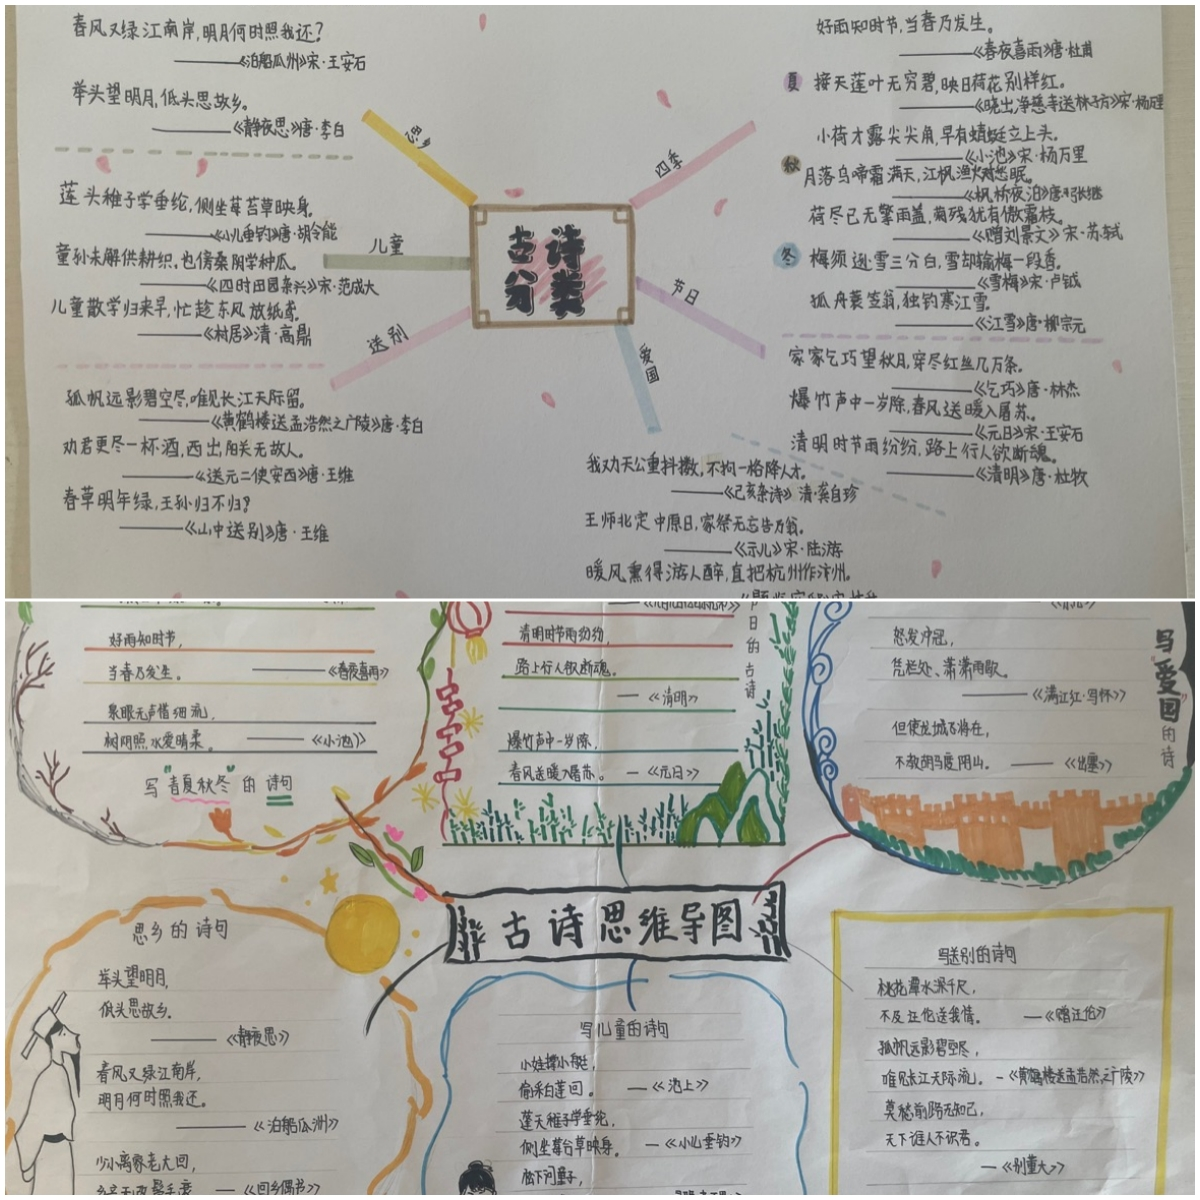 春风又绿江南岸,明月何时照我还?
——《泊船瓜州》宋·王安石
举头望明月,低头思故乡。
——《静夜思》唐·李白
莲头稚子学垂纶,侧坐莓苔草映身。
——《小儿垂钓》唐·胡令能
童孙未解供耕织,也傍桑阴学种瓜。
——《四时田园杂兴》宋·范成大
儿童散学归来早,忙趁东风放纸鸢。
——《村居》清·高鼎
孤帆远影碧空尽,唯见长江天际留。
——《黄鹤楼送孟浩然之广陵》唐·李白
劝君更尽一杯酒,西出阳关无故人。
——《送元二使安西》唐·王维
春草明年绿,王孙归不归?
——《山中送别》唐·王维
思乡
儿童
送别
古诗
分类
四季
节日
爱国
好雨知时节,当春乃发生。
——《春夜喜雨》唐·杜甫
夏 接天莲叶无穷碧,映日荷花别样红。
——《晓出净慈寺送林子方》宋·杨万里
小荷才露尖尖角,早有蜻蜓立上头。
——《小池》宋·杨万里
秋 月落乌啼霜满天,江枫渔火对愁眠。
——《枫桥夜泊》唐·张继
荷尽已无擎雨盖,菊残犹有傲霜枝。
——《赠刘景文》宋·苏轼
冬 梅须逊雪三分白,雪却输梅一段香。
——《雪梅》宋·卢钺
孤舟蓑笠翁,独钓寒江雪。
——《江雪》唐·柳宗元
家家乞巧望秋月,穿尽红丝几万条。
——《乞巧》唐·林杰
爆竹声中一岁除,春风送暖入屠苏。
——《元日》宋·王安石
清明时节雨纷纷,路上行人欲断魂。
——《清明》唐·杜牧
我劝天公重抖擞,不拘一格降人才。
——《己亥杂诗》清·龚自珍
王师北定中原日,家祭无忘告乃翁。
——《示儿》宋·陆游
暖风熏得游人醉,直把杭州作汴州。
好雨知时节,
当春乃发生。 ——《春夜喜雨》
泉眼无声惜细流,
树阴照水爱晴柔。 ——《小池》
写"春夏秋冬"的诗句
清明时节雨纷纷,
路上行人欲断魂。
—《清明》
爆竹声中一岁除,
春风送暖入屠苏。 —《元日》
节日的古诗
怒发冲冠,
凭栏处、潇潇雨歇。
——《满江红·写怀》
但使龙城飞将在,
不教胡马度阴山。 —《出塞》
写"爱国"的诗
古诗思维导图
思乡的诗句
举头望明月,
低头思故乡。
——《静夜思》
春风又绿江南岸,
明月何时照我还。
——《泊船瓜洲》
少小离家老大回,
—《回乡偶书》
写儿童的诗句
小娃撑小艇,
偷采白莲回。 —《池上》
蓬头稚子学垂纶,
侧坐莓台草映身。 —《小儿垂钓》
松下问童子,
写送别的诗句
桃花潭水深千尺,
不及汪伦送我情。 —《赠汪伦》
孤帆远影碧空尽,
唯见长江天际流。 -《黄鹤楼送孟浩然之广陵》
莫愁前路无知己,
天下谁人不识君。
—《别董大》